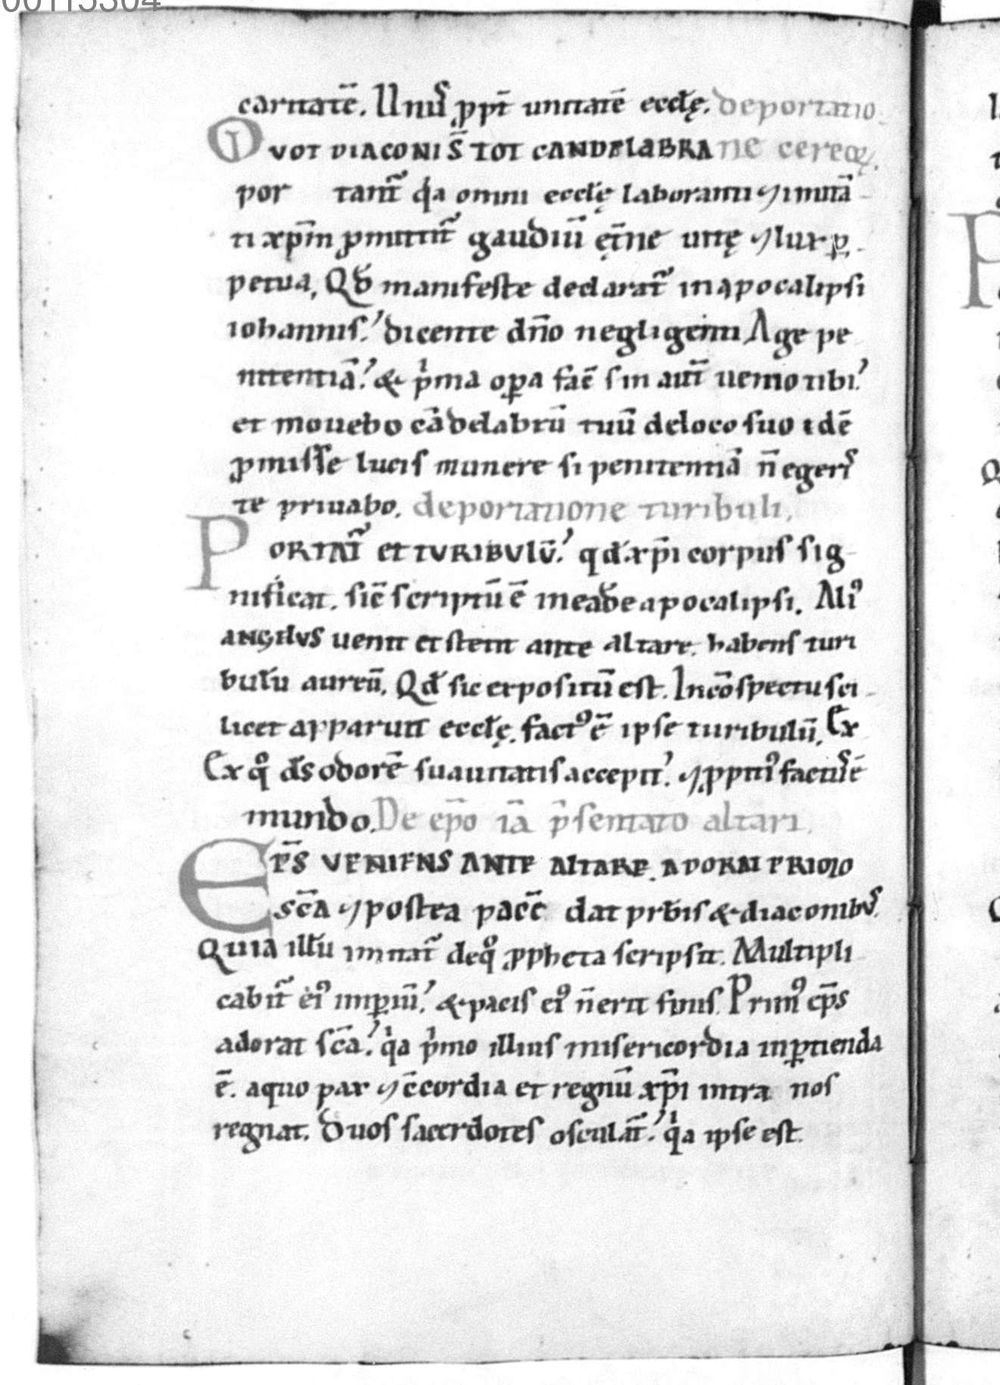 caritatē. Unus ꝓpt̄ unitatē eccłę. deportatio
QVOT DIACONI S̄ TOT CANDELABRA ne cereoꝝ.
por tant᷑ qͥa omni ecclę laboranti ⁊ imitā
ti xp̄m ꝓmittit᷑ gaudiū ęt̄ne uitę ⁊ lux ꝑ
petua, Qđ manifeste declarat᷑ in apocalipsi
iohannis. dicente dn̄o negligenti Age pe
nitentiā. & pͥma opa fac̄ sin aut̄ uenio tibi.
et mouebo cādelabrū tuū de loco suo idē
ꝓmisse lucis munere si penitentiā n̄ egeris
te priuabo. de portatione turibuli.
PORTAT᷑ ET TVRIBVLŪ. qđ xp̄i corpus sig
nificat. sic̄ scriptū ē in eadē apocalipsi. Aliꝰ
ANGELVS uenit et stetit ante altare. habens turi
bulū aureū. Qđ sic expositū est. In cōspectu sci
licet apparuit eccłę. factꝰ ē ipse turibulū. Ex
Ex qͦ ds̄ odorē suauitatis accepit. ⁊ ꝓpitiꝰ factus ē
mundo. De ep̄o iā p̄sentato altari.
EP̄S VENIENS ANTE ALTARE. ADORAT PRIMO
SC̄A ⁊ postea pacē dat prb̄is & diaconibus.
Quia illū imitat᷑ de qͦ ꝓpheta scripsit. Multipli
cabit᷑ eiꝰ impiū. & pacis eiꝰ n̄ erit finis. Primꝰ ep̄s
adorat sc̄a. qͥa pͥmo illius misericordia inꝑtienda
ē. a quo pax ⁊ c̄cordia et regnū xp̄i intra nos
regnat. Duos sacerdotes osculat᷑. qͥa ipse est.